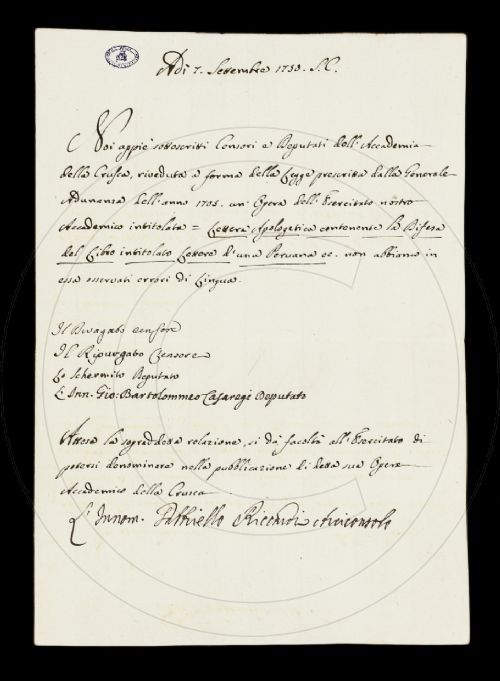 Adì 7. Settembre 1750. S.C.
Noi appie' sottoscritti Censori e Deputati dell'Accademia
della Crusca, riveduta a forma della Legge prescritta dalla Generale
Adunanza dell'anno 1705. un' Opera dell'Esercitato nostro
Accademico intitolata = Lettera Apologetica contenente la Difesa
del Libro intitolato Lettere d'una Peruana ec. non abbiamo in
essa osservati errori di Lingua.
Il Divagato Censore
Il Ripurgato Censore
Lo Schermito Deputato
L'Inn. Gio: Bartolommeo Casaregi Deputato
Attesa la sopraddetta relazione, si dà facoltà all'Esercitato di
potersi denominare nella pubblicazione di detta sua Opera
Accademico della Crusca
L'Innom. Riccardi Arciconsolo